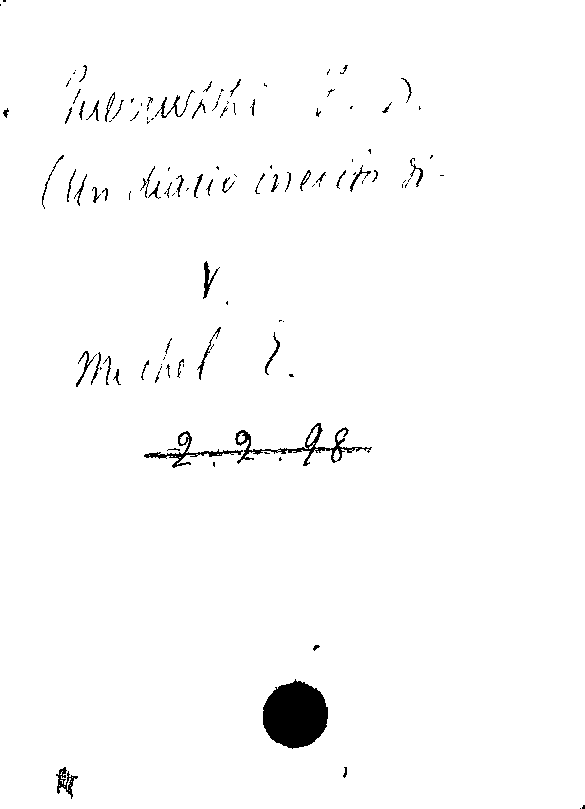 (Un diario inedito di -
V.
Michel E.
2.2.98